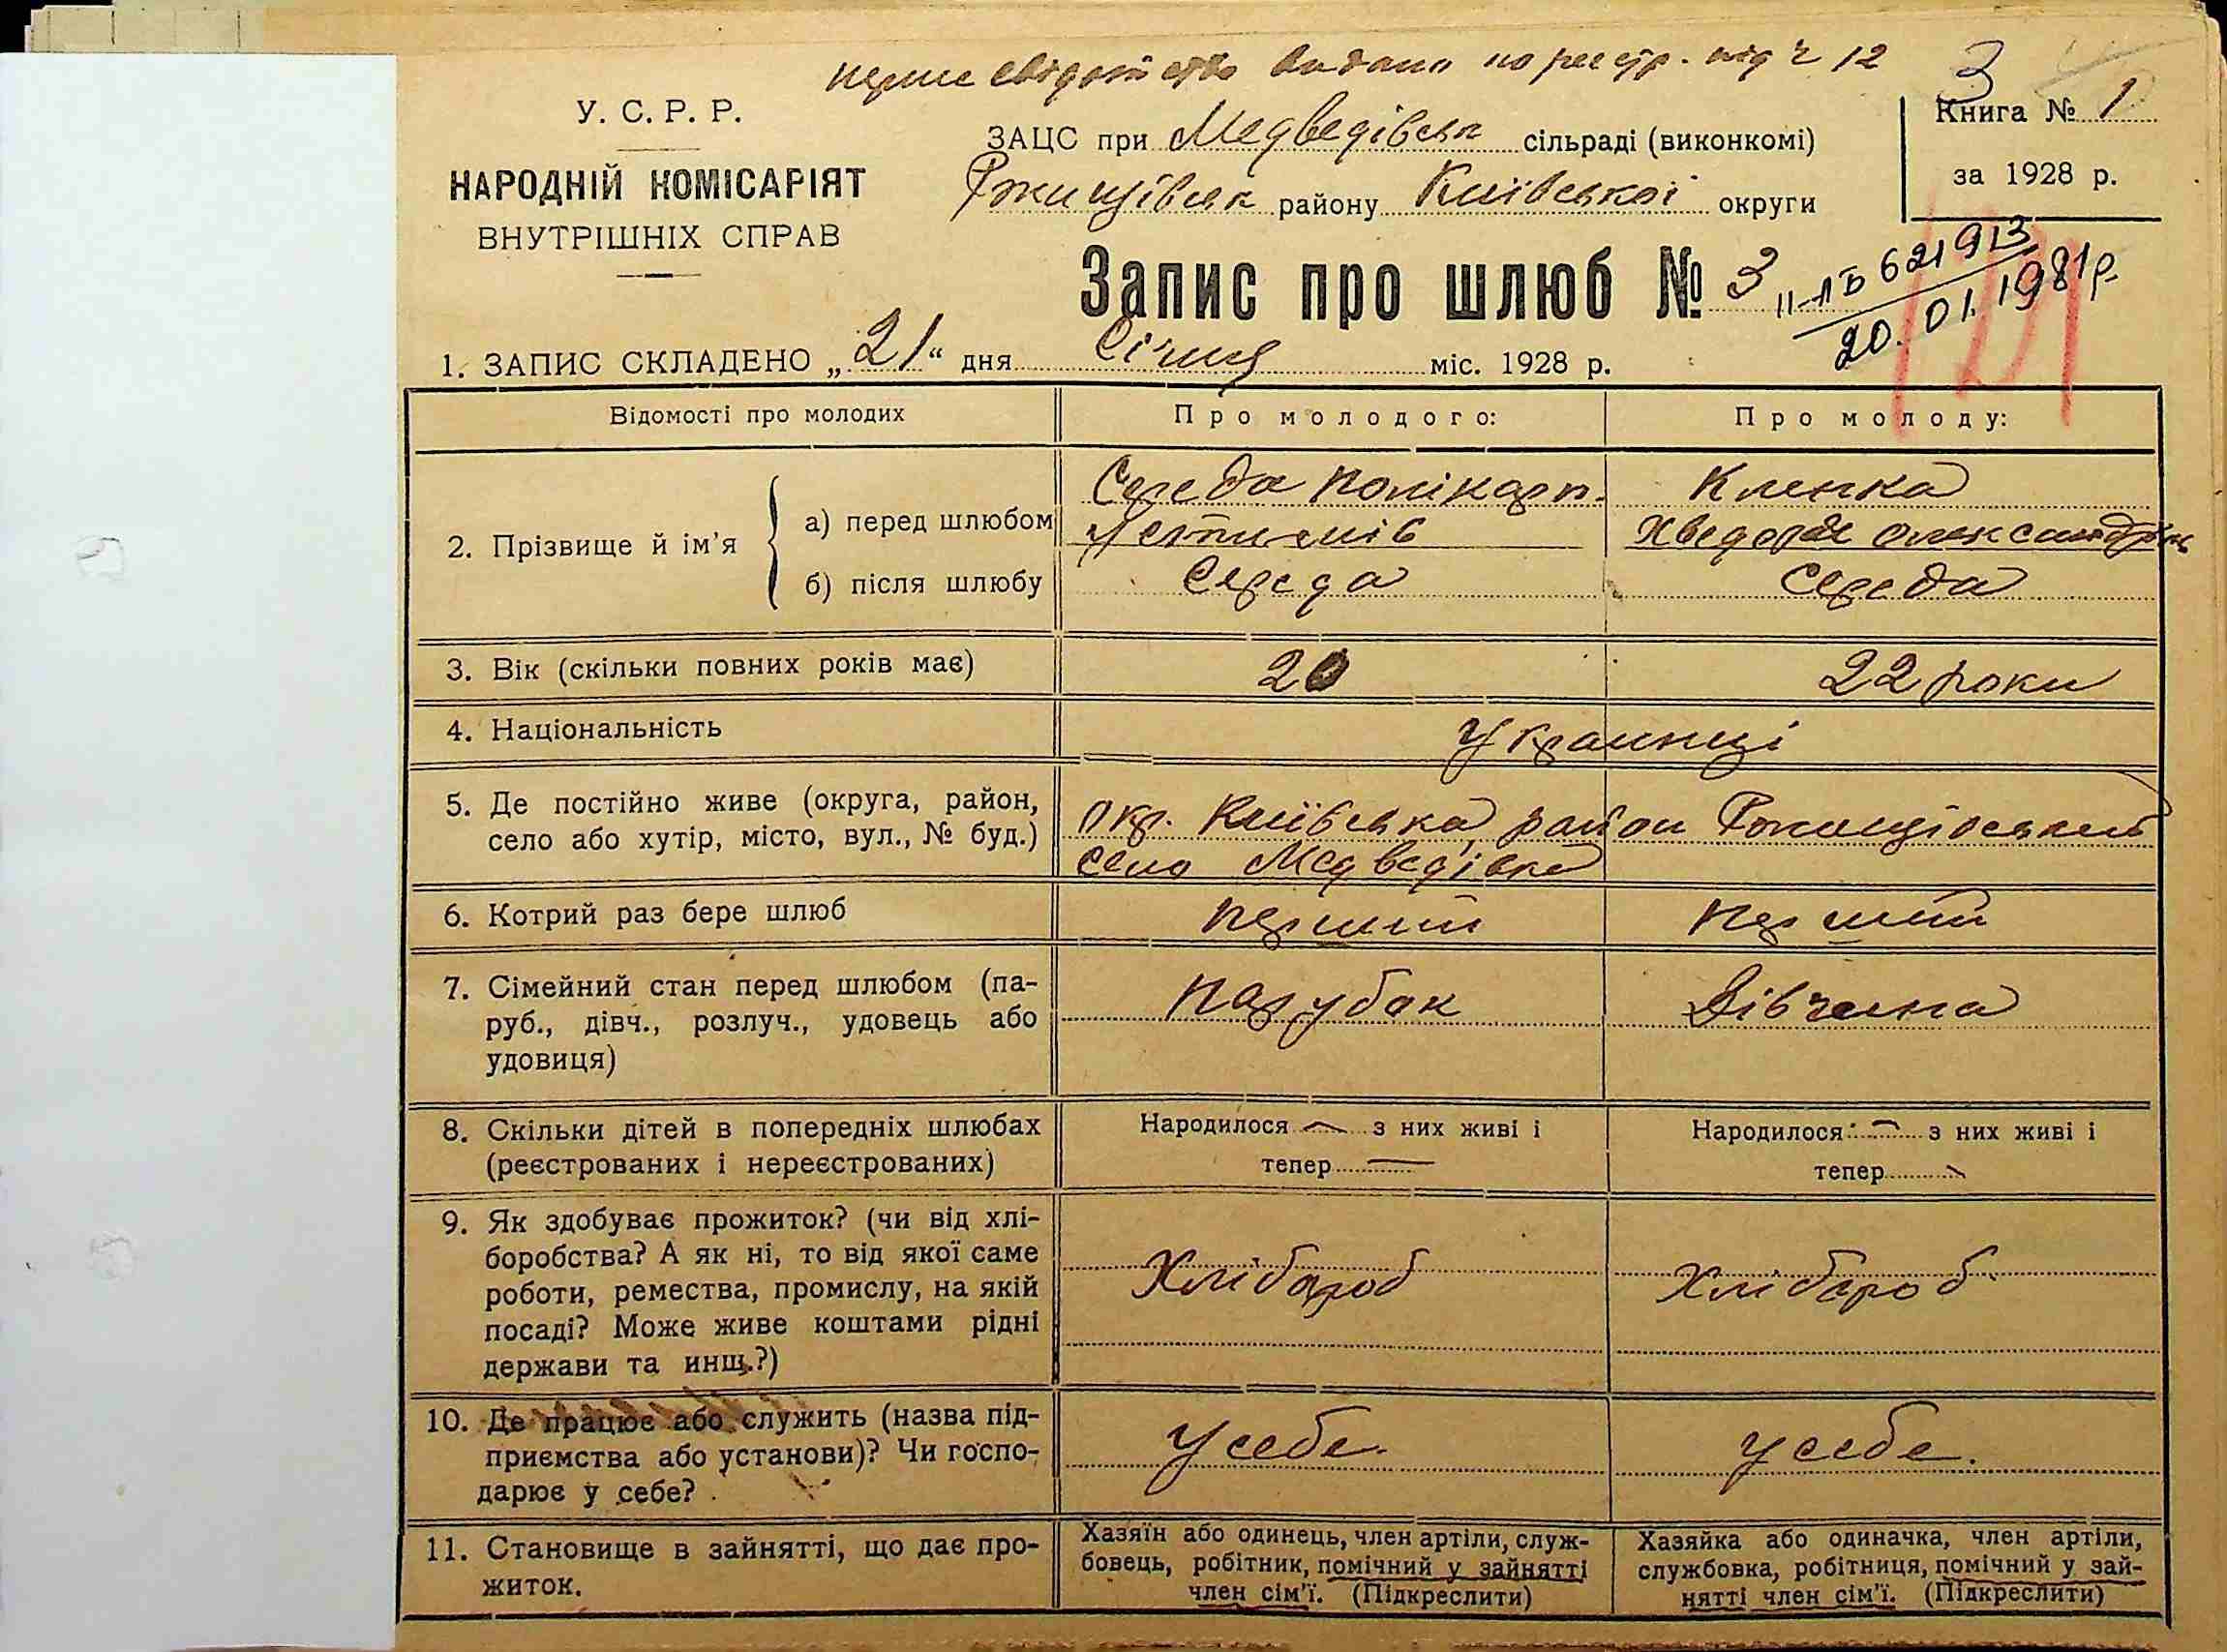 перше свідотство видано по реєстр. під ч 12
3
У. С. Р. Р.
НАРОДНІЙ КОМІСАРІЯТ
ВНУТРІШНІХ СПРАВ
ЗАЦС при Медведівськ сільраді (виконкомі)
Ржищівськ району Київської округи
Книга № 1
за 1928 р.
Запис про шлюб № 3
II-ЛБ 621913
20.01.1981р.
1. ЗАПИС СКЛАДЕНО „21“ дня Січня міс. 1928 р.
Відомості про молодих
Про молодого:
Про молоду:
2. Прізвище й ім’я
а) перед шлюбом
Середа Полікарп.
Кленка
Хведора Олександрів
б) після шлюбу
Середа
Середа
3. Вік (скільки повних років має)
20
22 роки
4. Національність
Українці
5. Де постійно живе (округа, район,
село або хутір, місто, вул., № буд.)
Окр. Київська, район Ржищівський
село Медведівка
6. Котрий раз бере шлюб
перший
перший
7. Сімейний стан перед шлюбом (па-
руб., дівч., розлуч., удовець або
удовиця)
парубок
Дівчина
8. Скільки дітей в попередніх шлюбах
(реєстрованих і нереєстрованих)
Народилося — з них живі і
тепер —
Народилося — з них живі і
тепер —
9. Як здобуває прожиток? (чи від хлі-
боробства? А як ні, то від якої саме
роботи, ремества, промислу, на якій
посаді? Може живе коштами рідні
держави та инщ.?)
Хлібороб
Хлібороб
10. Де працює або служить (назва під-
приємства або установи)? Чи госпо-
дарює у себе?
У себе.
у себе.
11. Становище в зайнятті, що дає про-
житок.
Хазяїн або одинець, член артіли, служ-
бовець, робітник, помічний у зайнятті
член сім’ї. (Підкреслити)
Хазяйка або одиначка, член артіли,
службовка, робітниця, помічний у зай-
нятті член сім’ї. (Підкреслити)